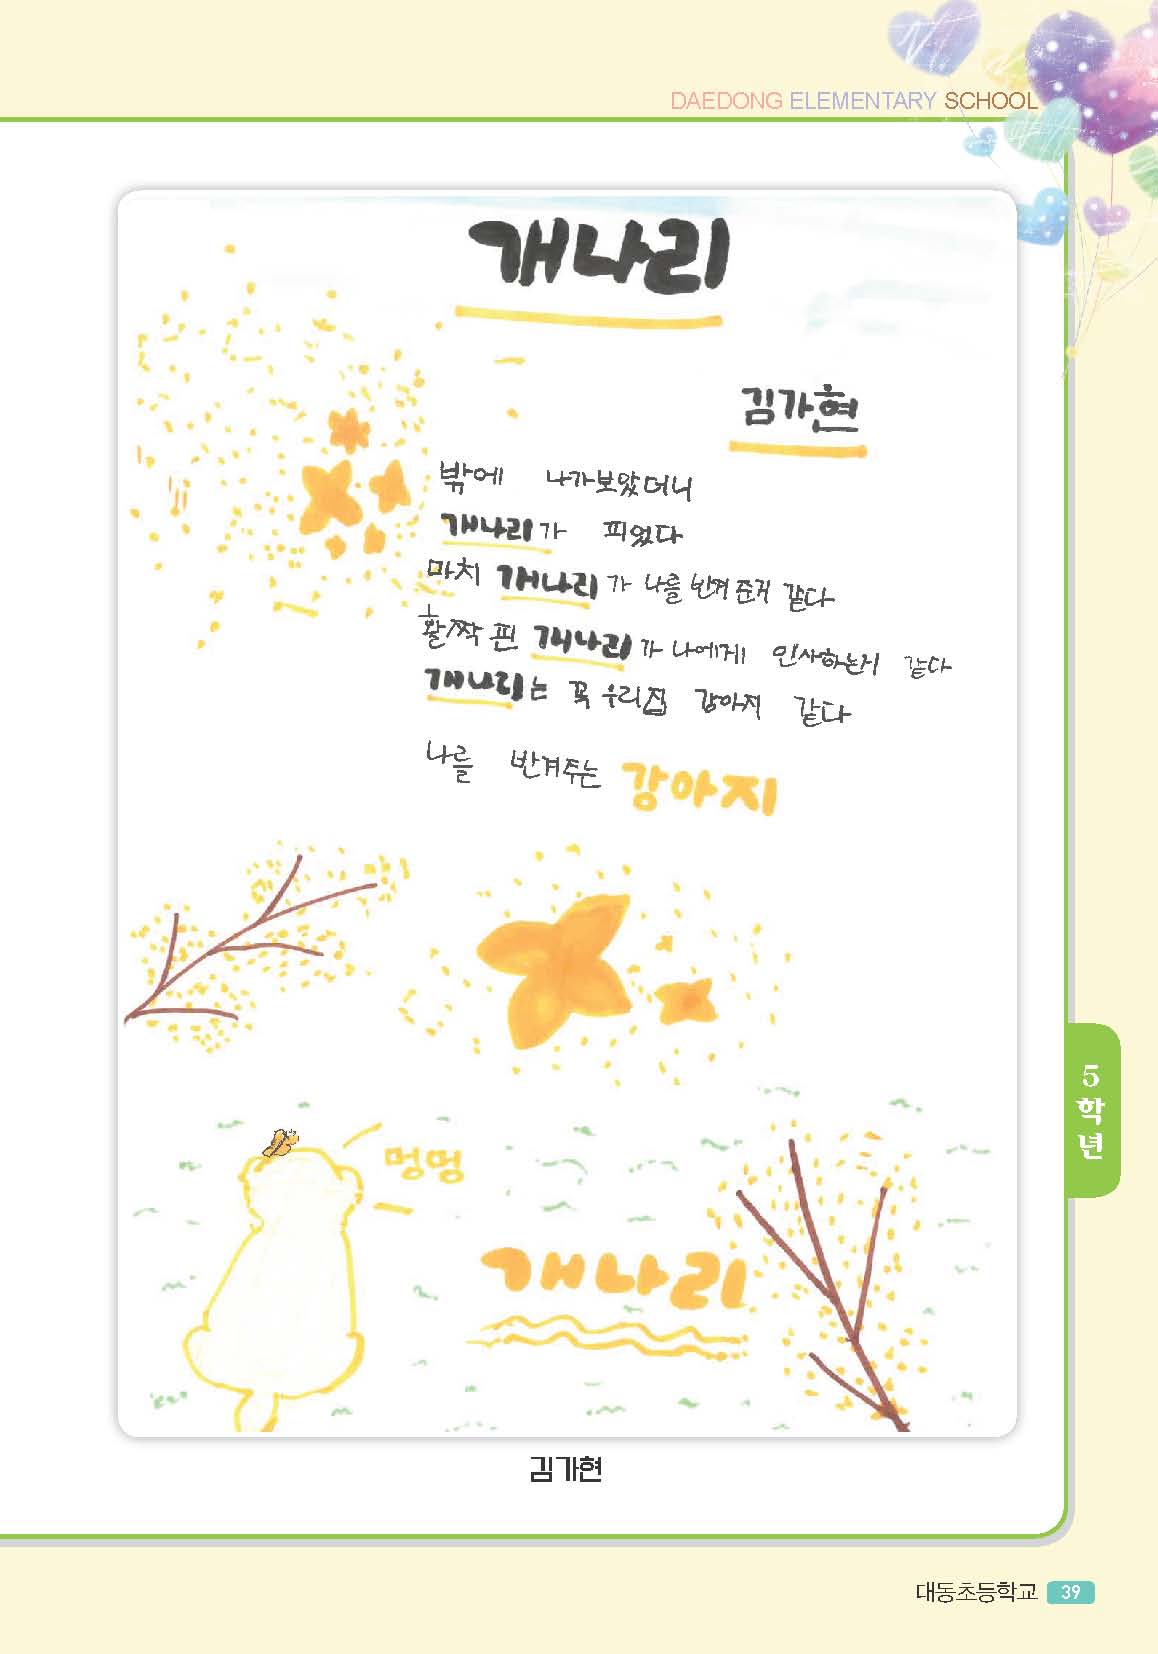 DAEDONG ELEMENTARY SCHOOL
개나리
김가현
밖에 나가보았더니
개나리가 피었다
마치 개나리가 나를 반겨 준거 같다
활짝 핀 개나리가 나에게 인사하는거 같다
개나리는 꼭 우리집 강아지 같다
나를 반겨주는 강아지
멍멍
개나리
김가현
5학년
대동초등학교 39